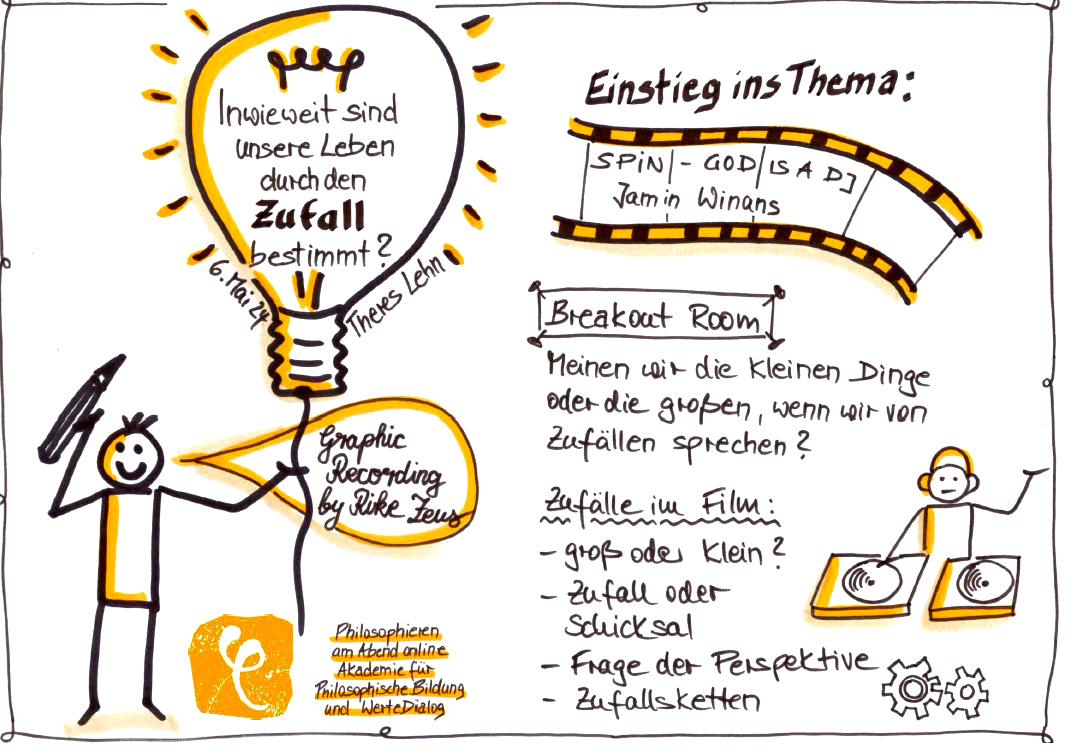 Inwieweit sind
unsere Leben
durch den
Zufall
bestimmt?
6. Mai 24
Theres Lehn
Graphic
Recording
by Rike Zeus
Philosophieren
am Abend online
Akademie für
Philosophische Bildung
und WerteDialog
Einstieg ins Thema:
SPIN - GOD IS A DJ
Jamin Winans
Breakout Room
Meinen wir die kleinen Dinge
oder die großen, wenn wir von
Zufällen sprechen?
Zufälle im Film:
- groß oder klein?
- Zufall oder
Schicksal
- Frage der Perspektive
- Zufallsketten